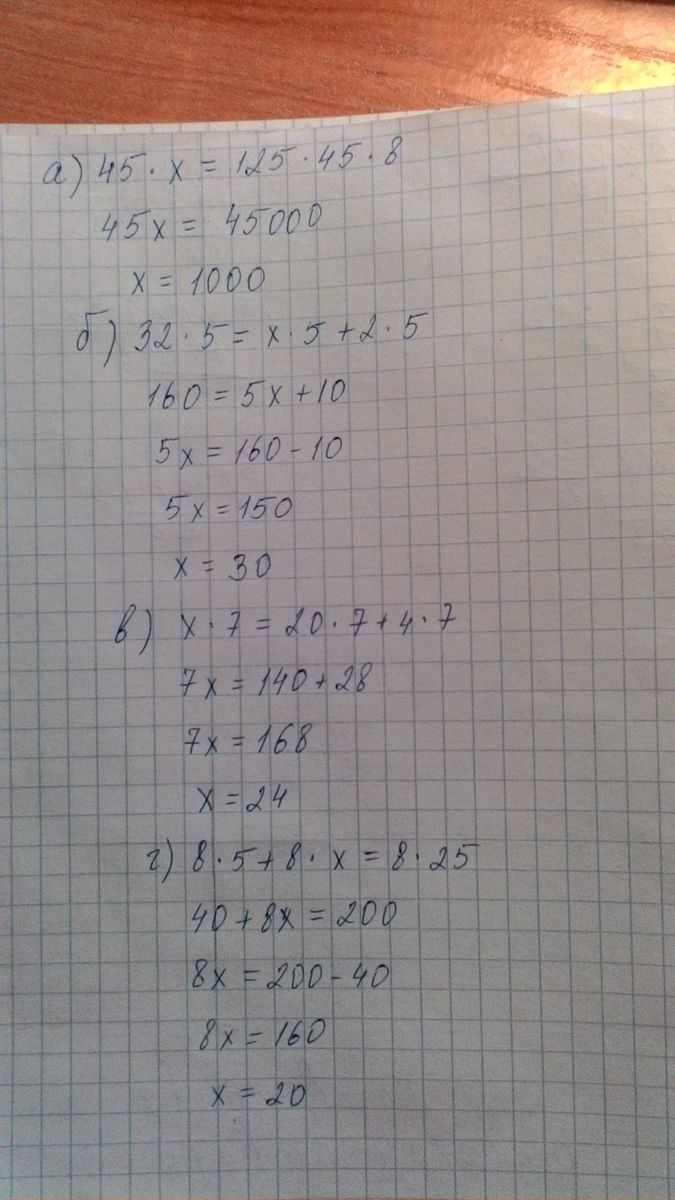 а) 45 · x = 125 · 45 · 8
45x = 45000
x = 1000
б) 32 · 5 = x · 5 + 2 · 5
160 = 5x + 10
5x = 160 - 10
5x = 150
x = 30
в) x · 7 = 20 · 7 + 4 · 7
7x = 140 + 28
7x = 168
x = 24
г) 8 · 5 + 8 · x = 8 · 25
40 + 8x = 200
8x = 200 - 40
8x = 160
x = 20